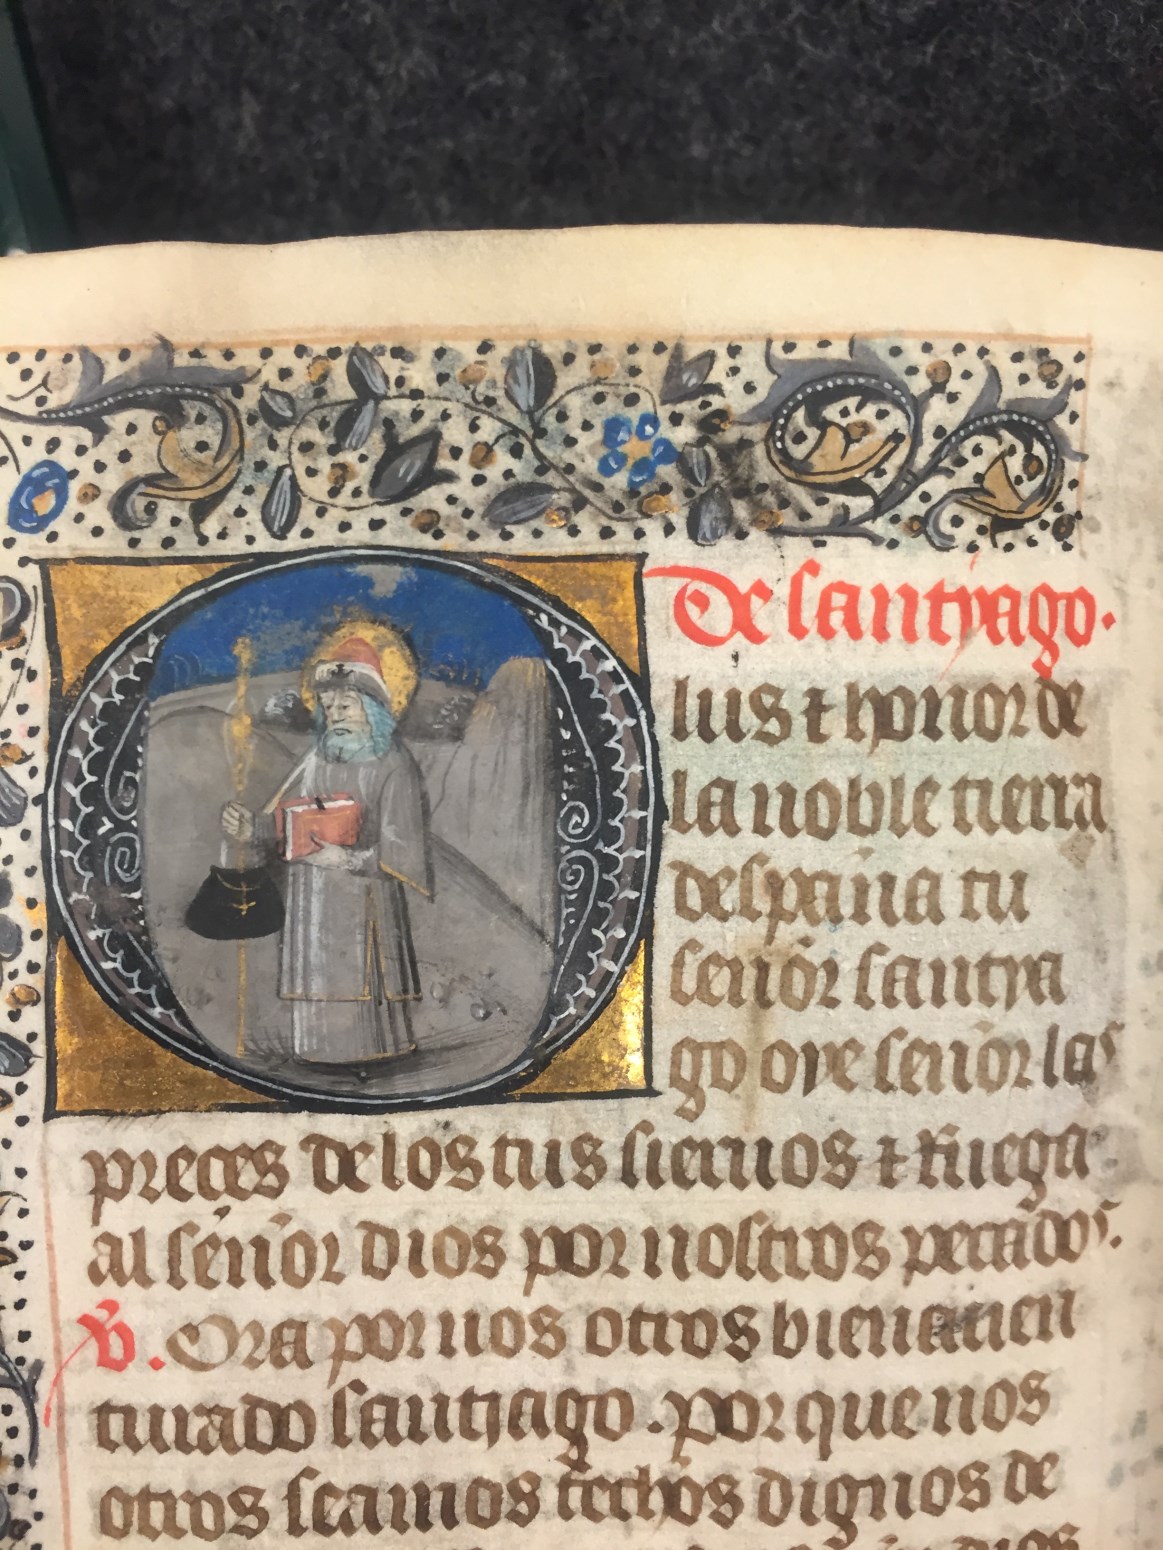 De santyago.
O
lus ⁊ honor de
la noble tierra
despaña tu
señor santya
go oye señor las
preces delos tus sieruos ⁊ Ruega
al señor dios por nostros pecados.
℣. Ora por nos otros bienauen
turado santiago. por que nos
otros seamos fechos dignos de
dios